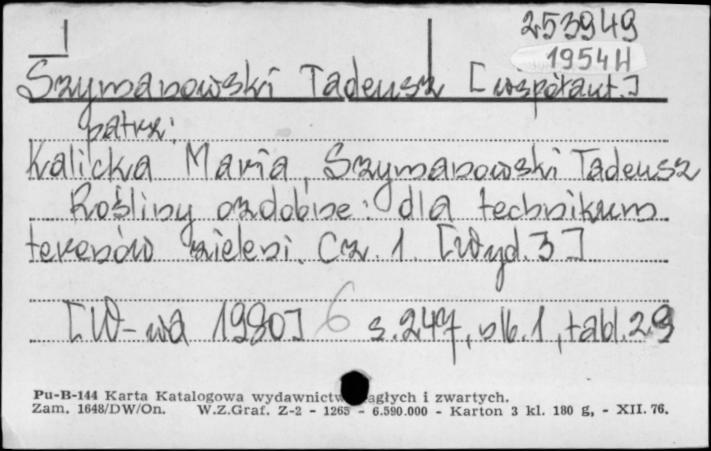 253949
1954H
Szymanowski Tadeusz [współaut.]
patrz:
Kalicka Maria, Szymanowski Tadeusz
Rośliny ozdobne: dla technikum
terenów zieleni. Cz. 1. [Wyd. 3]
[W-wa 1980] 6 s. 247, nlb. 1, tabl. 29
Pu-B-144 Karta Katalogowa wydawnictw agłych i zwartych.
Zam. 1648/DW/On. W.Z.Graf. Z-2 - 1265 - 6.590.000 - Karton 3 kl. 180 g, - XII. 76.